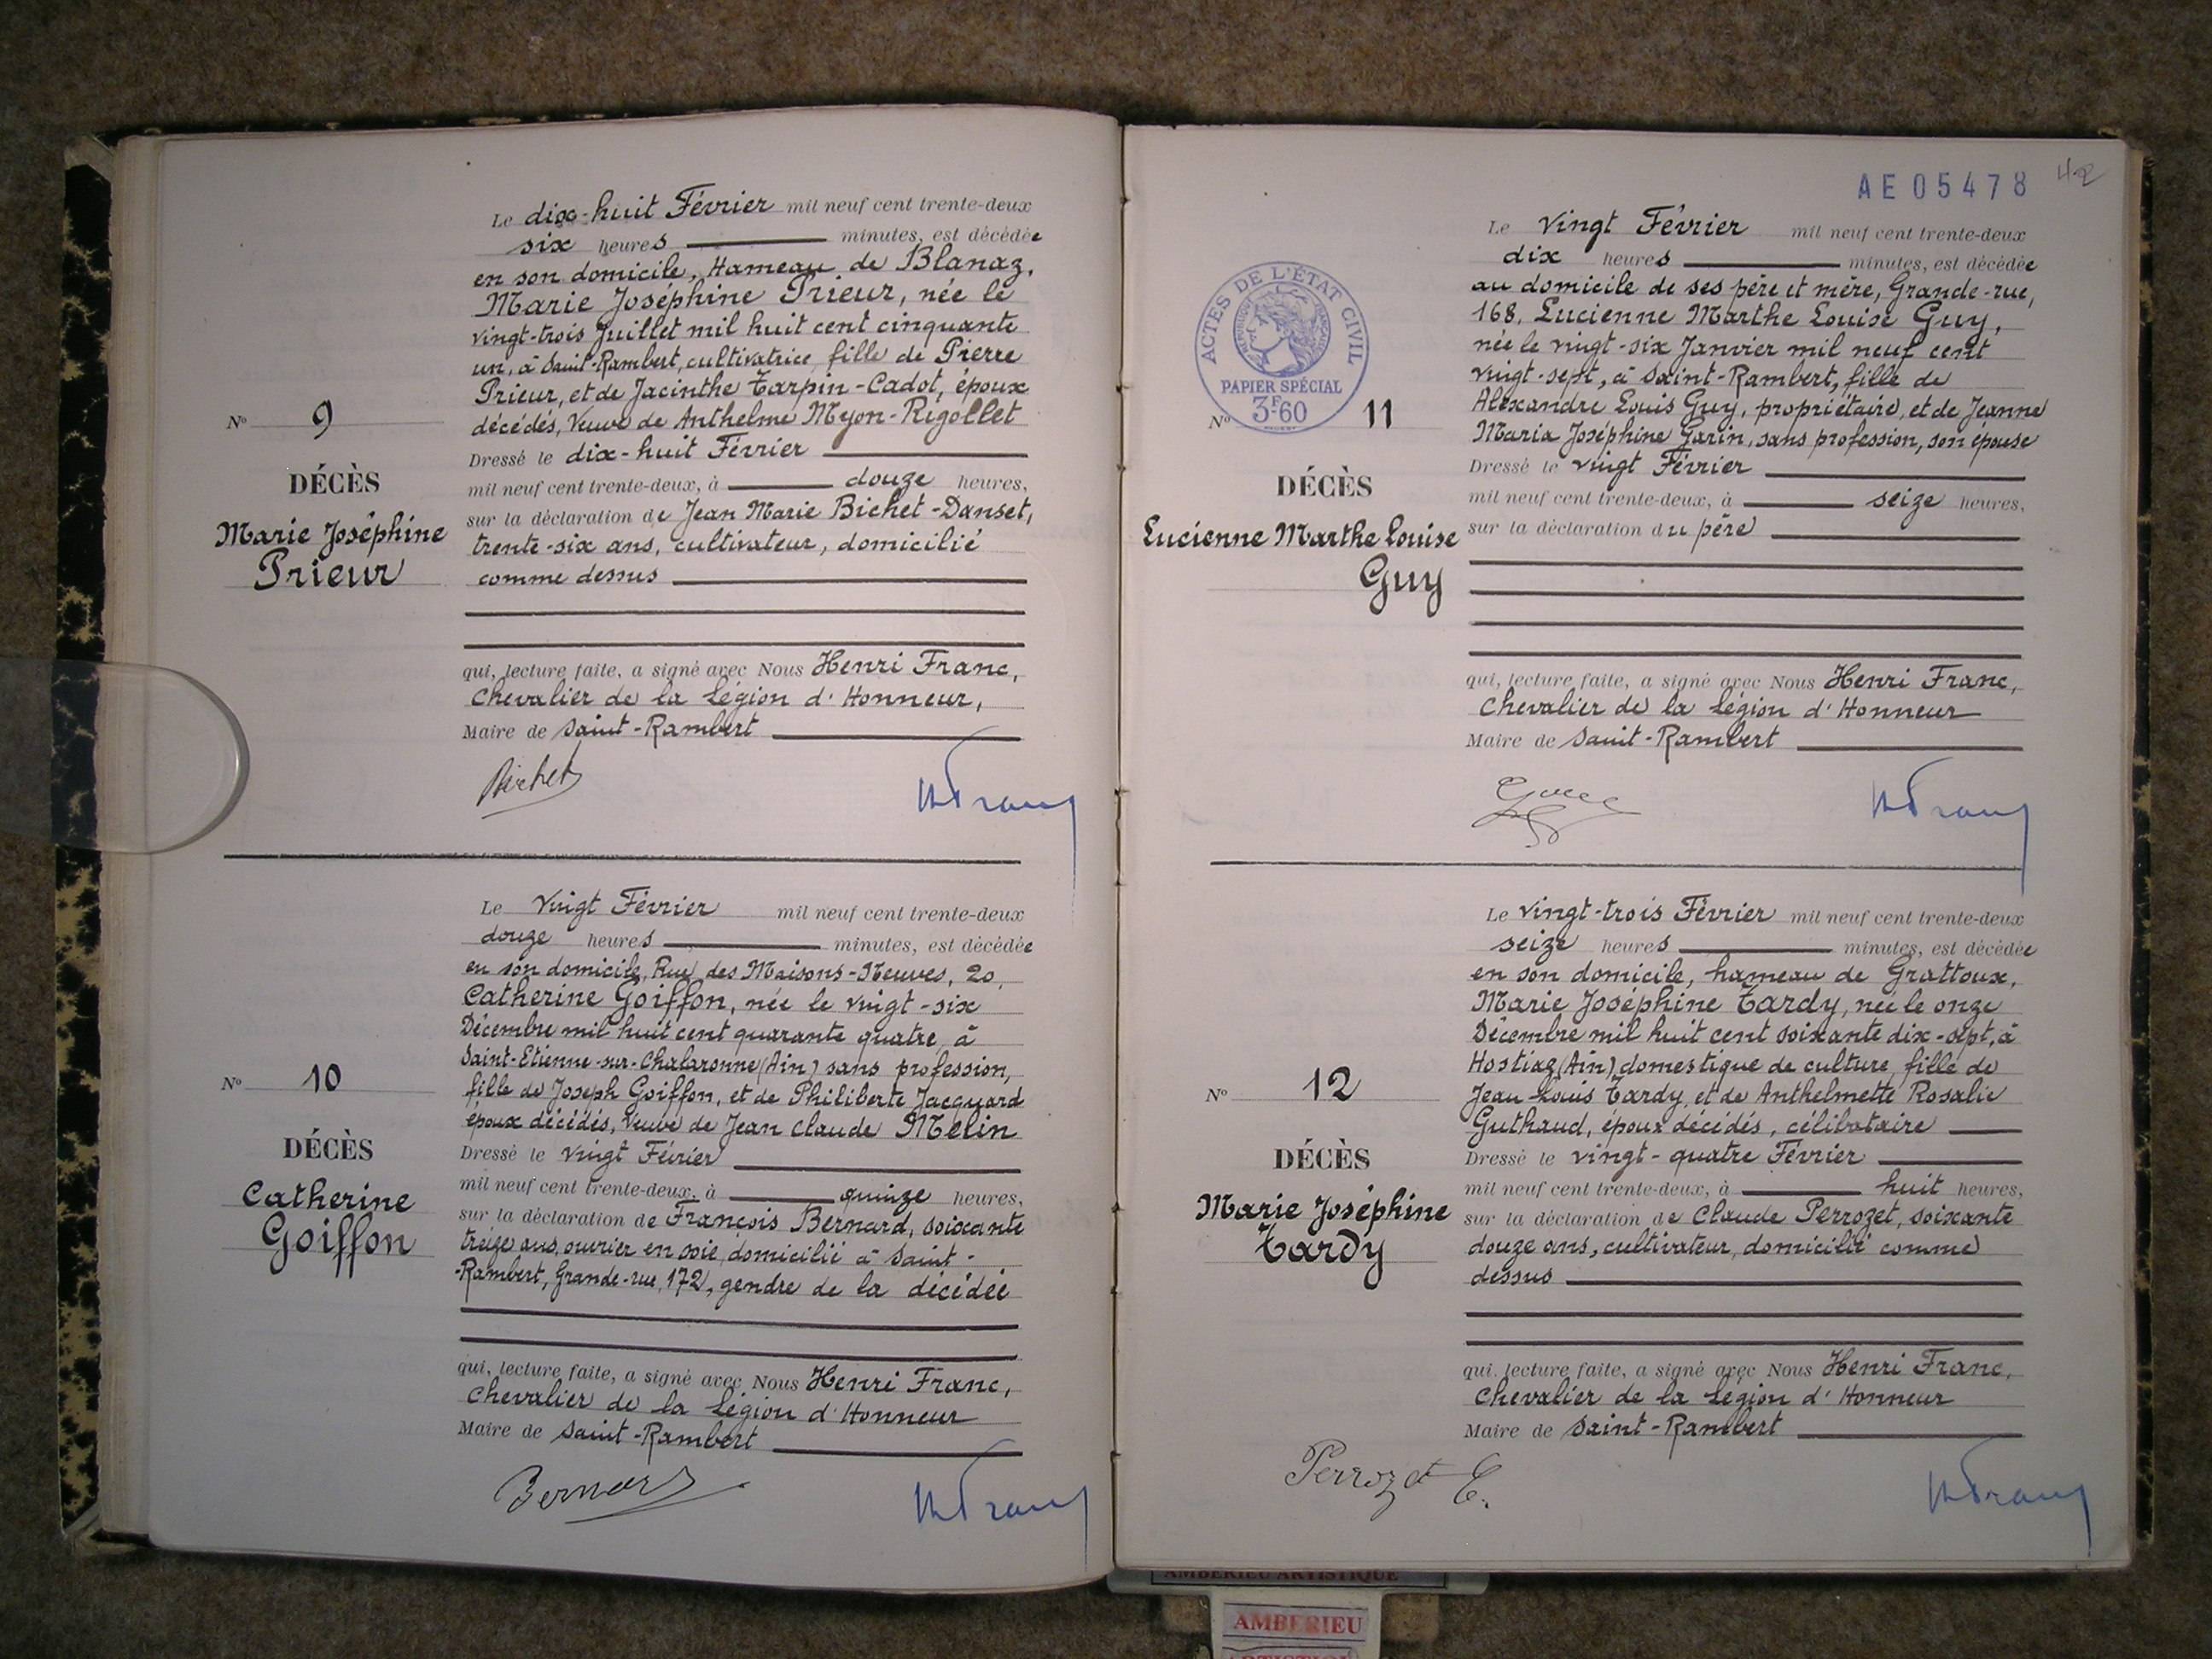 Le dix-huit Février mil neuf cent trente-deux
six heures minutes, est décédée
en son domicile, Hameau de Blanaz,
Marie Joséphine Prieur, née le
vingt-trois Juillet mil huit cent cinquante
un, à Saint-Rambert, cultivatrice, fille de Pierre
Prieur, et de Jacinthe Tarpin-Cadot, époux
décédés, Veuve de Anthelme Myon-Rigollet
Dressé le dix-huit Février
mil neuf cent trente-deux, à douze heures,
sur la déclaration de Jean Marie Bichet-Danset,
trente-six ans, cultivateur, domicilié
comme dessus
qui, lecture faite, a signé avec Nous Henri Franc,
Chevalier de la Légion d'Honneur,
Maire de Saint-Rambert
Nº 9
DÉCÈS
Marie Joséphine
Prieur
Bichet
Le Vingt Février mil neuf cent trente-deux
douze heures minutes, est décédée
en son domicile, Rue des Maisons-Neuves, 20,
Catherine Goiffon, née le vingt-six
Décembre mil huit cent quarante quatre, à
Saint-Etienne-sur-Chalaronne (Ain) sans profession,
fille de Joseph Goiffon, et de Philiberte Jacquard
époux décédés, Veuve de Jean Claude Melin
Dressé le Vingt Février
mil neuf cent trente-deux, à quinze heures,
sur la déclaration de François Bernard, soixante
treize ans, ouvrier en soie, domicilié à Saint-
-Rambert, Grande-rue, 172, gendre de la décédée
qui, lecture faite, a signé avec Nous Henri Franc,
Chevalier de la Légion d'Honneur
Maire de Saint-Rambert
Nº 10
DÉCÈS
Catherine
Goiffon
Bernard
AE05478
42
ACTES DE L'ÉTAT CIVIL
PAPIER SPÉCIAL
3F60
Le Vingt Février mil neuf cent trente-deux
dix heures minutes, est décédée
au domicile de ses père et mère, Grande-rue,
168, Lucienne Marthe Louise Guy,
née le vingt-six Janvier mil neuf cent
vingt-sept, à Saint-Rambert, fille de
Alexandre Louis Guy, propriétaire, et de Jeanne
Maria Joséphine Garin, sans profession, son épouse
Dressé le vingt Février
mil neuf cent trente-deux, à seize heures,
sur la déclaration du père
qui, lecture faite, a signé avec Nous Henri Franc,
Chevalier de la Légion d'Honneur
Maire de Saint-Rambert
Nº 11
DÉCÈS
Lucienne Marthe Louise
Guy
Le vingt-trois Février mil neuf cent trente-deux
seize heures minutes, est décédée
en son domicile, hameau de Grattoux,
Marie Joséphine Tardy, née le onze
Décembre mil huit cent soixante dix-sept, à
Hostiaz (Ain) domestique de culture, fille de
Jean Louis Tardy, et de Anthelmette Rosalie
Guthaud, époux décédés, célibataire
Dressé le vingt-quatre Février
mil neuf cent trente-deux, à huit heures,
sur la déclaration de Claude Perrozet, soixante
douze ans, cultivateur, domicilié comme
dessus
qui, lecture faite, a signé avec Nous Henri Franc,
Chevalier de la Légion d'Honneur
Maire de Saint-Rambert
Nº 12
DÉCÈS
Marie Joséphine
Tardy
Perrozet C.
AMBERIEU ARTISTIQUE
AMBERIEU